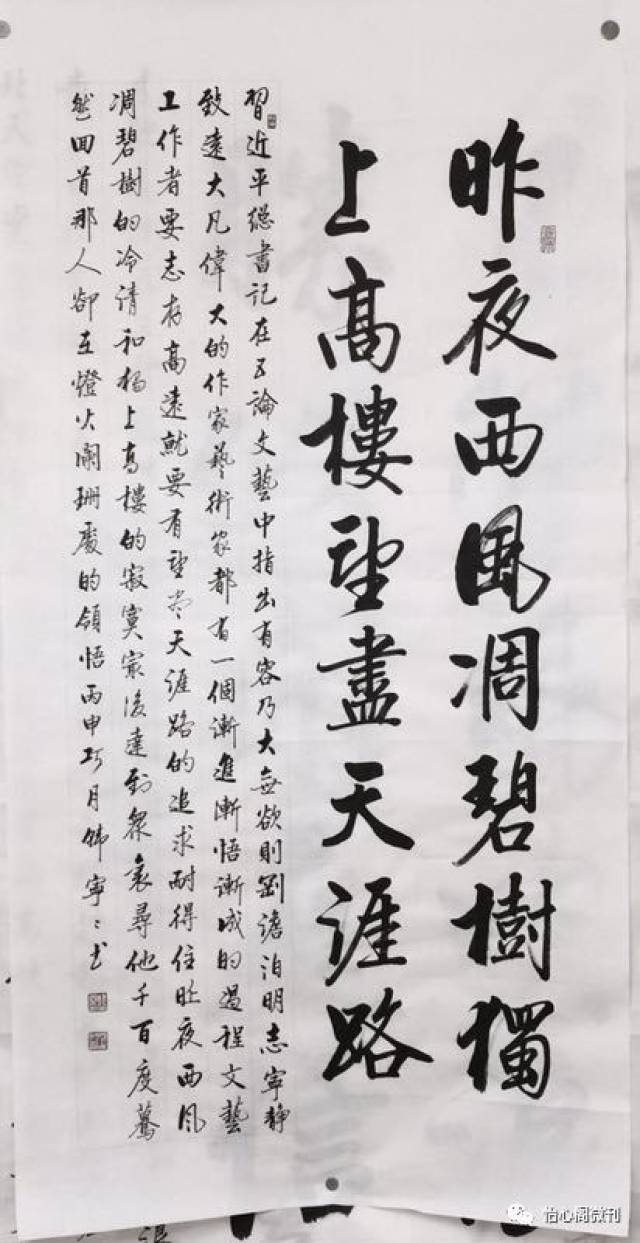 昨夜西風凋碧樹獨
上高樓望盡天涯路
習近平總書記在五論文藝中指出有容乃大無欲則剛澹泊明志寧靜
致遠大凡偉大的作家藝術家都有一個漸進漸悟漸成的過程文藝
工作者要志存高遠就要有望尽天涯路的追求耐得住昨夜西风
凋碧樹的冷清和獨上高樓的寂寞最後達到眾裏尋他千百度驀
然回首那人卻在燈火闌珊處的領悟丙申巧月韩寧寧书
怡心阁微刊